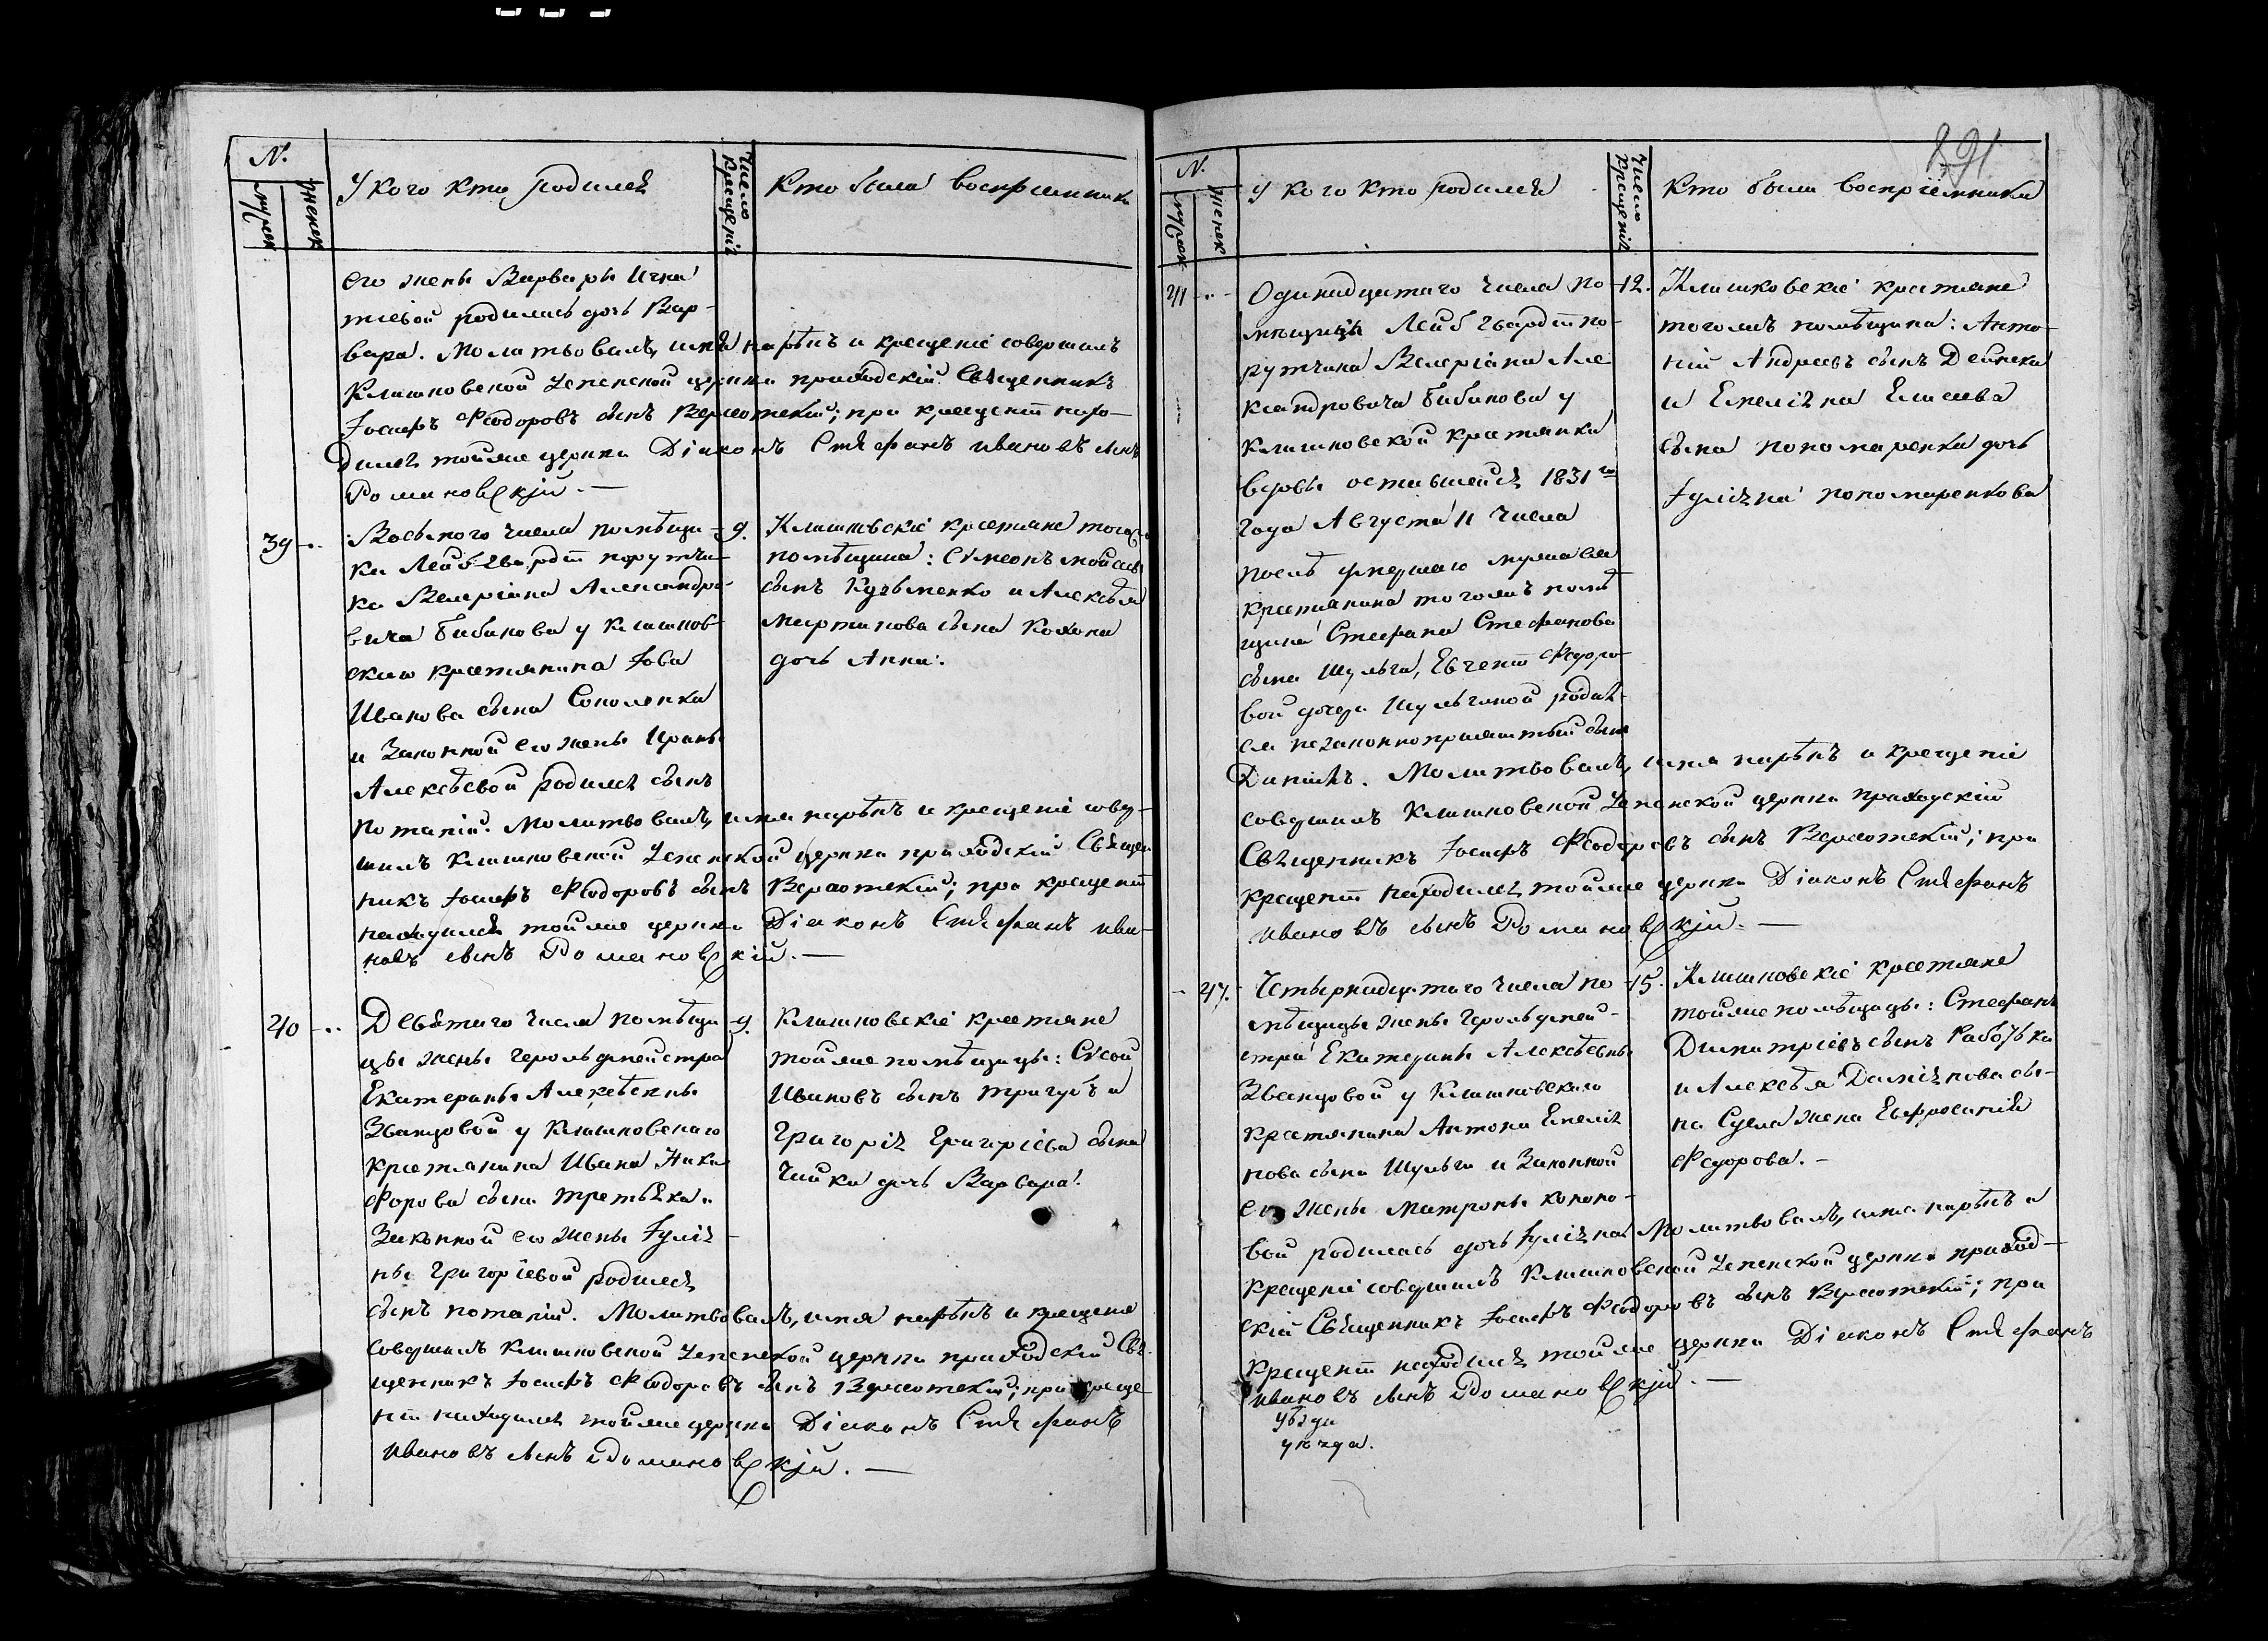 N.
мужск
женск
У кого кто родился
Число крещенія
Кто были воспріемники
его жены Варвары Игна
тіевой родилась дочь Вар-
вара. Молитвовалъ, имя нарѣкъ и крещеніе совершилъ
Клишковской Успенской церкви приходскій Священникъ
Іосифъ Ѳеодоровъ сынъ Версотскій; при крещеніи нахо-
дился тойже церкви Діаконъ Стефанъ ивановъ сынъ
Романовскій. —
39 - 9.
Восьмого числа помѣщи-
ка Лейбъ гвардіи порутчи-
ка Валеріана Александро-
вича Бибикова у Клишков-
скаго крестьянина Іова
Иванова сына Соколенка
и Законной его жены Ирины
Алексѣевой родился сынъ
Потапій. Молитвовалъ, имя нарѣкъ и крещеніе совер-
шилъ Клишковской Успенской церкви приходскій Священ
никъ Іосифъ Ѳеодоровъ сынъ Версотскій; при крещеніи
находился тойже церкви Діаконъ Стефанъ ива-
новъ сынъ Романовскій. —
Клишковскіе крестьяне тогожъ
помѣщика: Сѵмеонъ Мойсѣевъ
сынъ Кузьменко и Алексѣя
Мартинова сына Кохана
дочь Анна.
40 - 9.
Девятаго числа помѣщи
цы жены Герольдмейстра
Екатерины Алексѣевны
Званцовой у Клишковскаго
крестьянина Ивана Ники
форова сына Третьяка и
Законной его жены Іулія-
ны Григоріевой родился
сынъ Потапій. Молитвовалъ, имя нарѣкъ и крещеніе
совершилъ Клишковской Успенской церкви приходскій Свя-
щенникъ Іосифъ Ѳеодоровъ сынъ Версотскій; при креще-
ніи находился тойже церкви Діаконъ Стефанъ
ивановъ сынъ Романовскій. —
Клишковскіе крестьяне
тойже помѣщицы: Сѵсой
Ивановъ сынъ Тригубъ и
Григорія Григоріева сына
Чайка дочь Варвара.
891
N.
мужск
женск
У кого кто родился
Число крещенія
Кто были воспріемники
41 - 12.
Одинадцатаго числа по-
мѣщика Лейбъ гвардіи по-
рутчика Валеріана Але
ксандровича Бибикова у
Клишковской крестьянки
вдовы оставшейся 1831го
года Августа 11 числа
послѣ умершаго мужа ея
крестьянина тогожъ помѣ
щика Стефана Стефанова
сына Шульги, Евгеніи Ѳедоро-
вой дочери Шульгиной родил-
ся незаконноприжитый сынъ
Даніилъ. Молитвовалъ, имя нарѣкъ и крещеніе
совершилъ Клишковской Успенской церкви приходскій
Священникъ Іосифъ Ѳеодоровъ сынъ Версотскій; при
крещеніи находился тойже церкви Діаконъ Стефанъ
ивановъ сынъ Романовскій. —
Клишковскіе крестьяне
тогожъ помѣщика: Анто-
ній Андреевъ сынъ Дейнека
и Емеліяна Елисеева
сына Пономаренка дочь
Іуліяна Пономаренкова
- 47. 15.
Четырнадцатаго числа по-
мѣщицы жены Герольдмей-
стра Екатерины Алексѣевны
Званцовой у Клишковскаго
крестьянина Антона Емелія
нова сына Шульги и Законной
его жены Матроны Конono-
вой родилась дочь Іуліяна. Молитвовалъ, имя нарѣкъ и
крещеніе совершилъ Клишковской Успенской церкви приход-
скій Священникъ Іосифъ Ѳеодоровъ сынъ Версотскій; при
крещеніи находился тойже церкви Діаконъ Стефанъ
ивановъ сынъ Романовскій. —
Клишковскіе крестьяне
тойже помѣщицы: Стефанъ
Димитріевъ сынъ Работька
и Алексѣя Даміянова сы-
на Суела жена Евфросинія
Ѳедорова. —